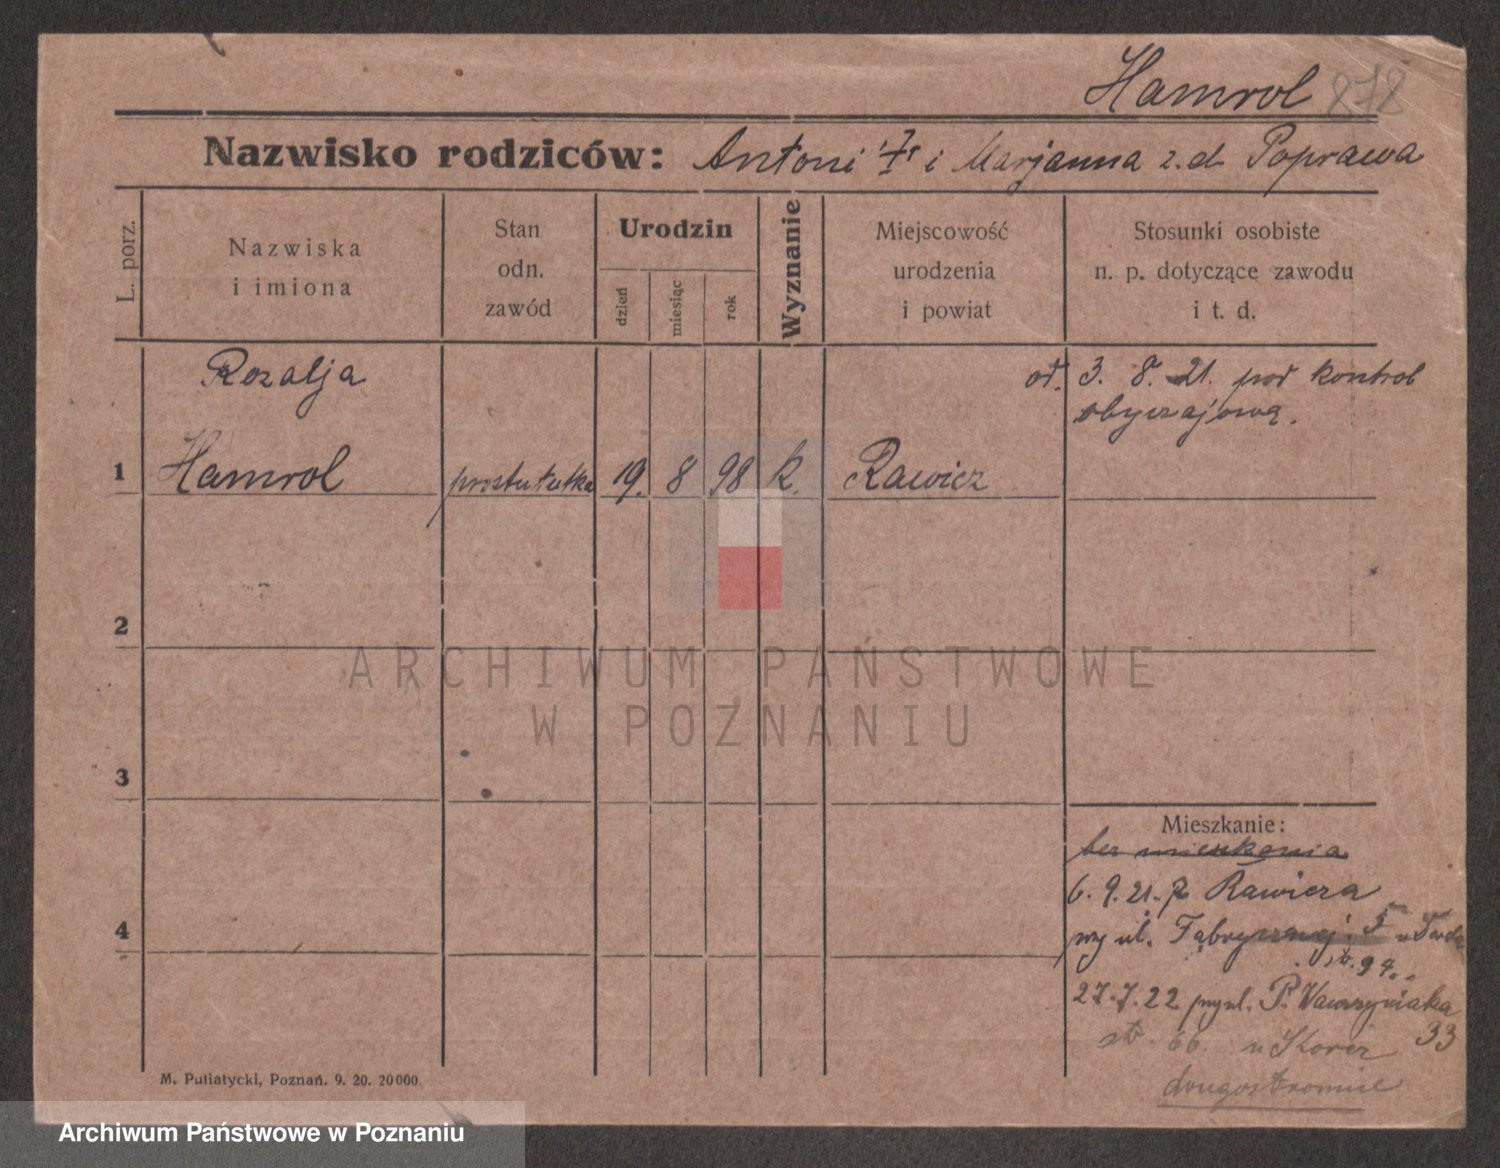 Hamrol 878
Nazwisko rodziców: Antoni i Marjanna z.d Poprawa
L. porz.
Nazwiska
i imiona
Stan
odn.
zawód
Urodzin
dzień
miesiąc
rok
Wyznanie
Miejscowość
urodzenia
i powiat
Stosunki osobiste
n. p. dotyczące zawodu
i t. d.
Rozalja
od. 3. 8. 21. pod kontrol
obyczajową.
1 Hamrol prostytutka 19. 8 98 k. Rawicz
2
ARCHIWUM PAŃSTWOWE
W POZNANIU
3
Mieszkanie:
bez mieszkania
6. 9. 21. Z Rawicza
4
przy ul. Fabrycznej 5
27.7.22 przy ul. P. Wawrzyniaka
33
66
M. Putiatycki, Poznań. 9. 20. 20000.
Archiwum Państwowe w Poznaniu